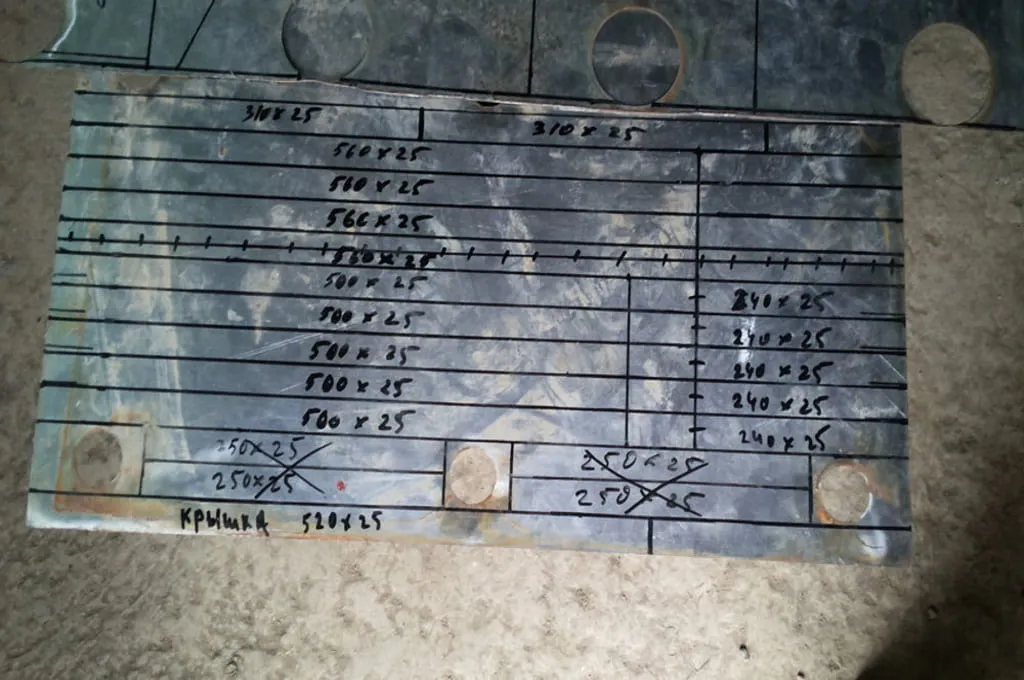 310 x 25 310 x 25
560 x 25
560 x 25
566 x 25
560 x 25
500 x 25
240 x 25
500 x 25
240 x 25
500 x 25
240 x 25
500 x 25
240 x 25
500 x 25
240 x 25
250 x 25 250 x 25
250 x 25 250 x 25
КРЫШКА 520 x 25